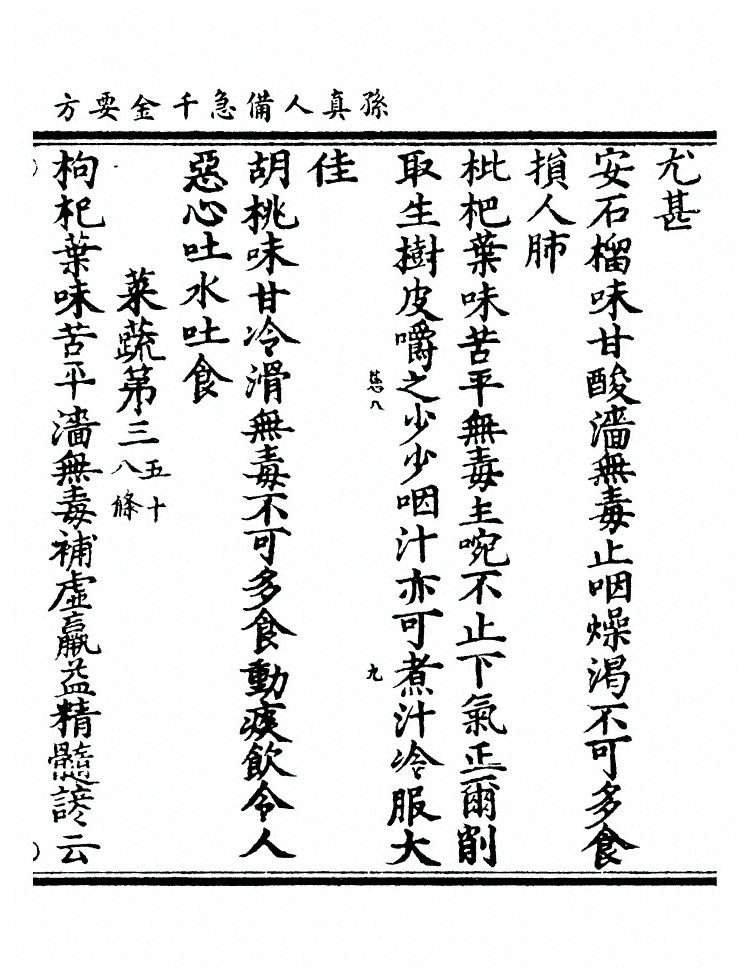 孫真人備急千金要方
尤甚
安石榴味甘酸濇無毒止咽燥渴不可多食
損人肺
枇杷葉味苦平無毒主啘不止下氣正爾削
取生樹皮嚼之少少咽汁亦可煑汁冷服大
佳
胡桃味甘冷滑無毒不可多食動痰飲令人
惡心吐水吐食
菜蔬第三五十八條
枸杞葉味苦平濇無毒補虛羸益精髓諺云
九